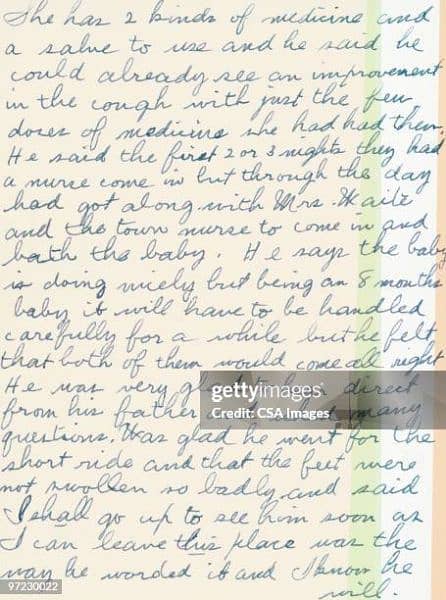 She has 2 kinds of medicine and
a salve to use and he said he
could already see an improvement
in the cough with just the few
doses of medicine she had had then.
He said the first 2 or 3 nights they had
a nurse come in but through the day
had got along with Mrs. Waite
and the town nurse to come in and
bath the baby. He says the baby
is doing nicely but being an 8 months
baby it will have to be handled
carefully for a while but he felt
that both of them would come all right
He was very glad to hear direct
from his father many
questions. Was glad he went for the
short ride and that the feet were
not swollen so badly and said
I shall go up to see him soon as
I can leave this place was the
way he worded it and I know he
will.
gettyimages
Credit: CSA Images
97230022